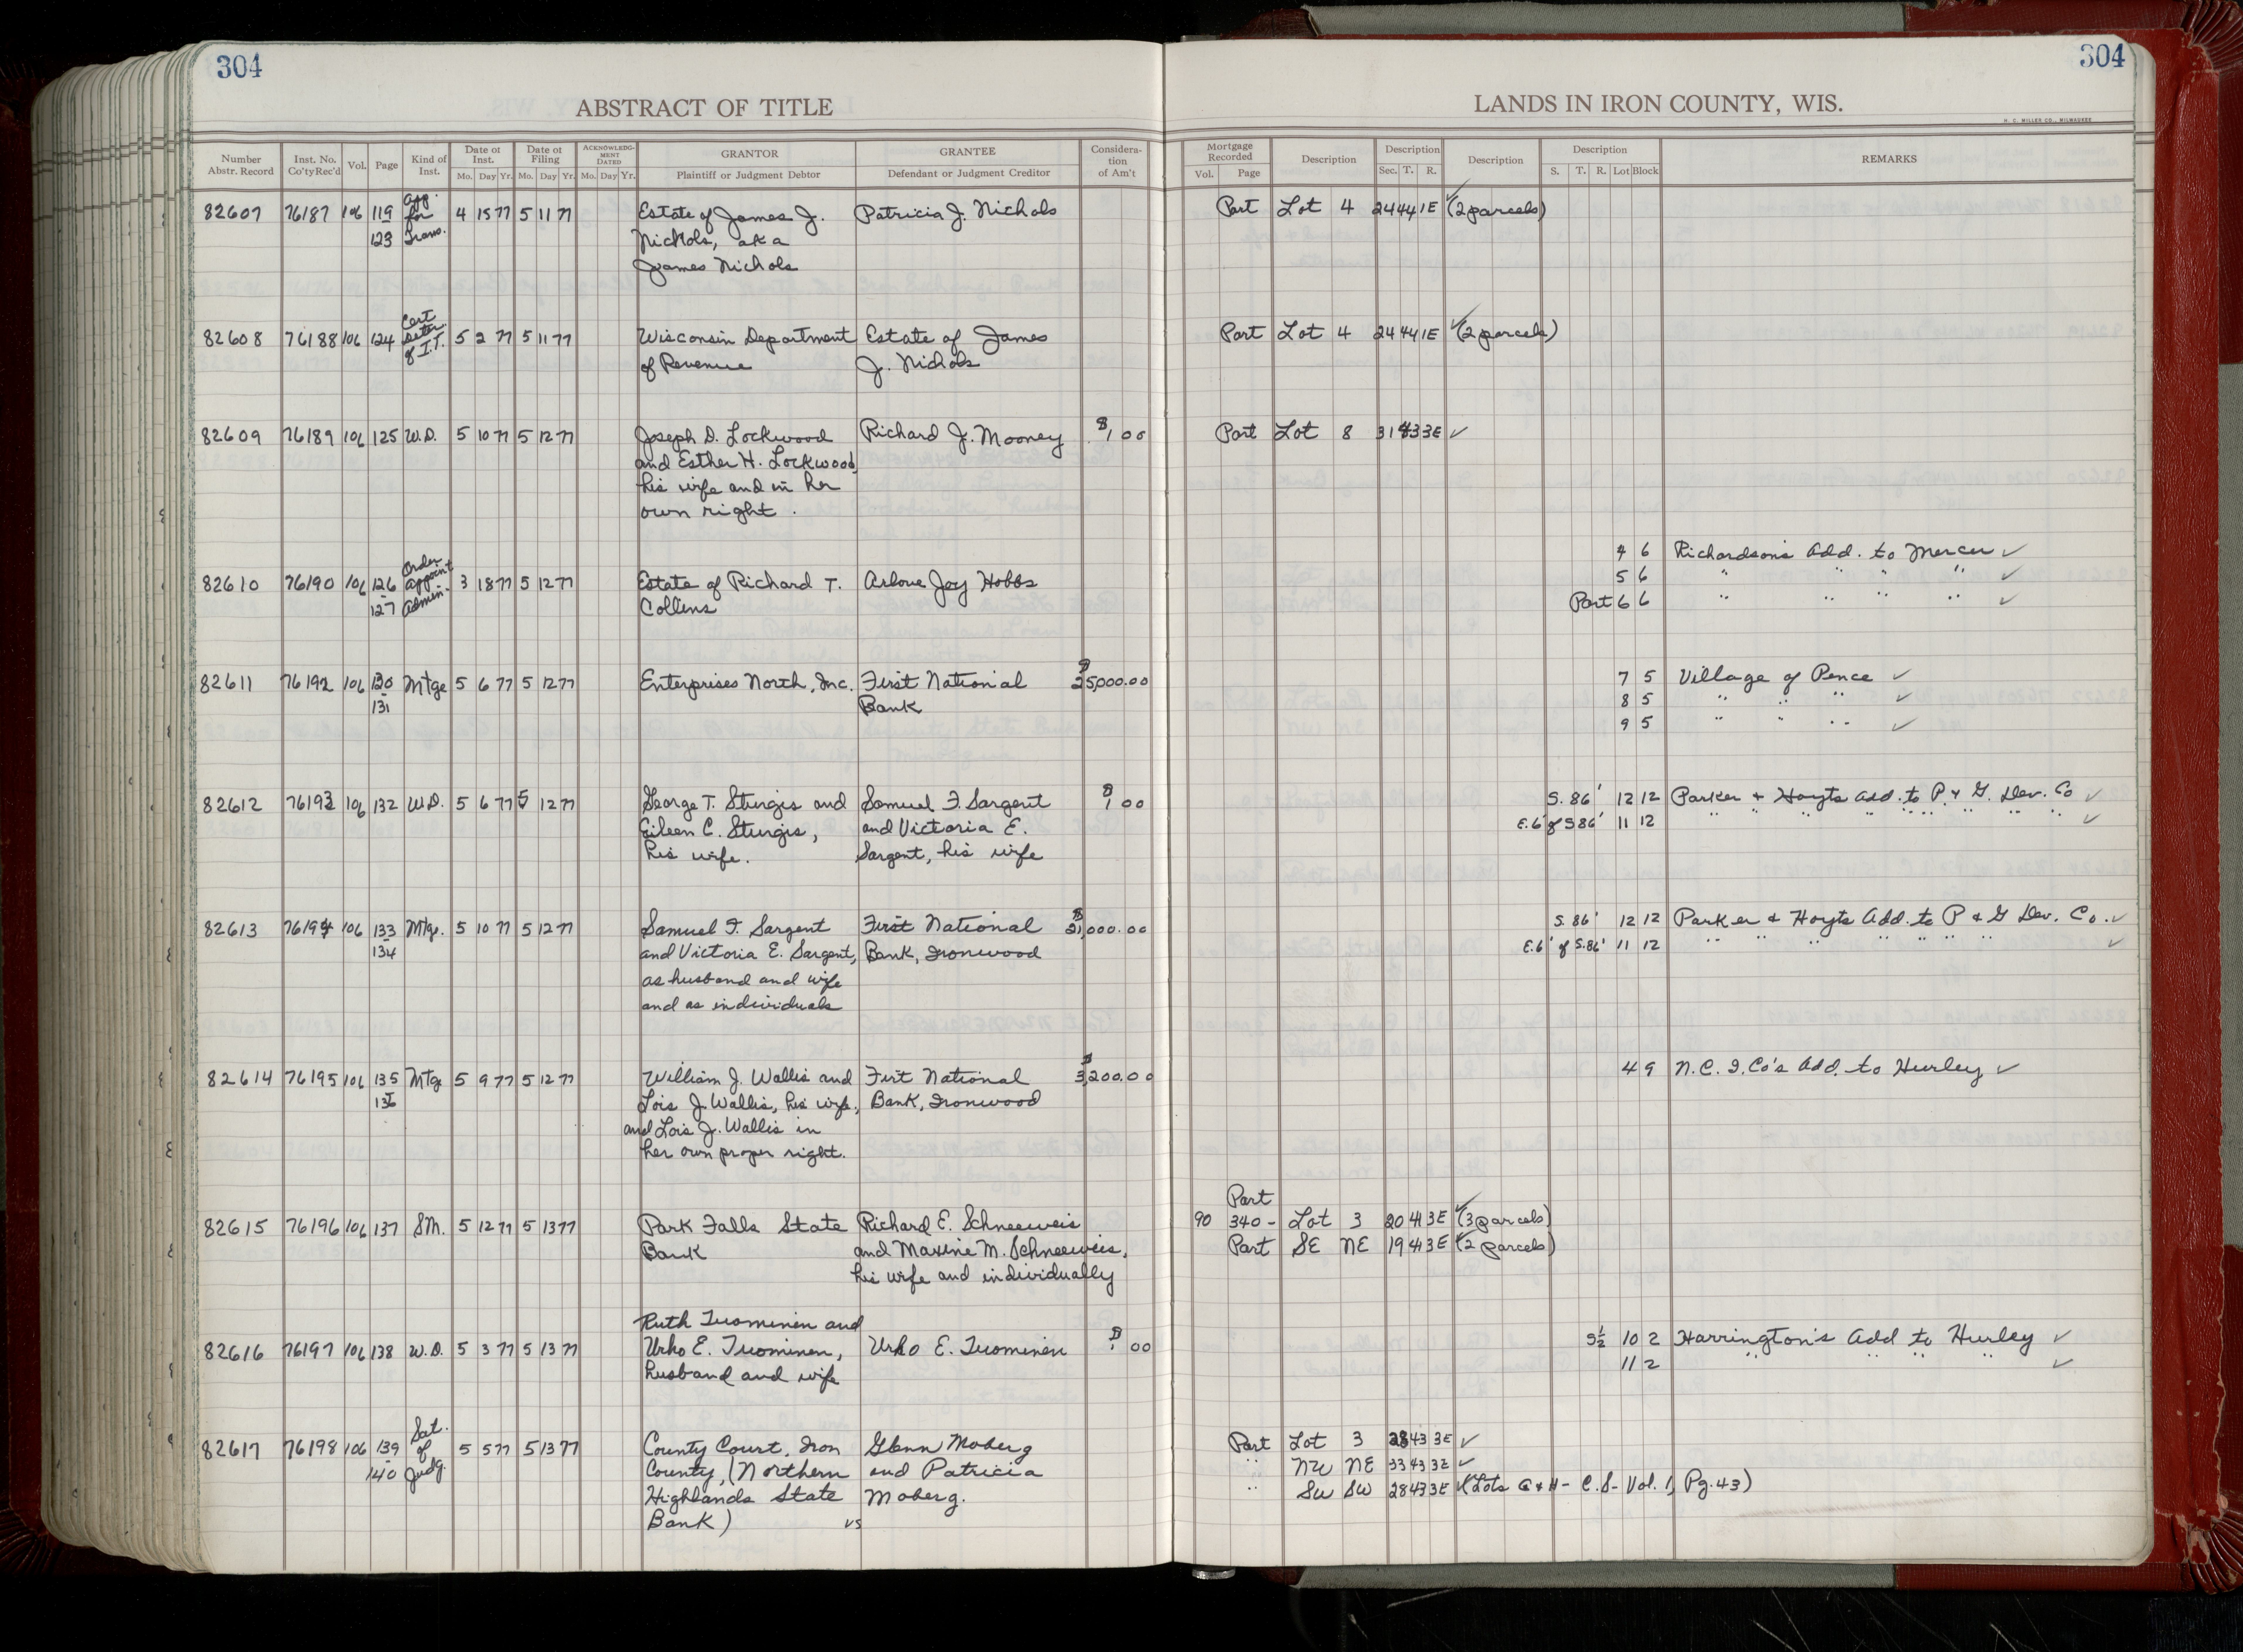 304
304
ABSTRACT OF TITLE
LANDS IN IRON COUNTY, WIS.
H. C. MILLER CO., MILWAUKEE
Number Abstr. Record | Inst. No. Co'ty Rec'd | Vol. | Page | Kind of Inst. | Date of Inst. Mo. Day Yr. | Date of Filing Mo. Day Yr. | ACKNOWLEDGMENT DATED Mo. Day Yr. | GRANTOR Plaintiff or Judgment Debtor | GRANTEE Defendant or Judgment Creditor | Consideration of Am't | Mortgage Recorded Vol. Page | Description | Description Sec. T. R. | Description | Description S. T. R. Lot Block | REMARKS
App.
82607 76187 106 119 for 4 15 77 5 11 77 Estate of James J. Patricia J. Nichols Part Lot 4 24 44 1E ✓(2 parcels)
123 Trans. Nichols, aka
James Nichols
Cert
82608 76188 106 124 deter. 5 2 77 5 11 77 Wisconsin Department Estate of James Part Lot 4 24 44 1E ✓(2 parcels)
of I.T. of Revenue J. Nichols
82609 76189 106 125 W.D. 5 10 77 5 12 77 Joseph D. Lockwood Richard J. Mooney $1.00 Part Lot 8 31 43 3E ✓
and Esther H. Lockwood,
his wife and in her
own right.
4 6 Richardson's Add. to Mercer ✓
Order 5 6 " " " " ✓
82610 76190 106 126 Appoint 3 18 77 5 12 77 Estate of Richard T. Arlove Joy Hobbs Part 6 6 " " " " ✓
-127 Admin. Collins
82611 76192 106 130 Mtge 5 6 77 5 12 77 Enterprises North, Inc. First National $25,000.00 7 5 Village of Pence ✓
-131 Bank 8 5 " " " ✓
9 5 " " " ✓
82612 76193 106 132 W.D. 5 6 77 5 12 77 George T. Sturgis and Samuel F. Sargent $1.00 S. 86' 12 12 Parker & Hoyts Add. to P. & G. Dev. Co ✓
Eileen C. Sturgis, and Victoria E. E. 6' of S 86' 11 12 " " " " " " " " " ✓
his wife. Sargent, his wife
82613 76194 106 133 Mtge. 5 10 77 5 12 77 Samuel F. Sargent First National $21,000.00 S. 86' 12 12 Parker & Hoyts Add. to P & G Dev. Co. ✓
-134 and Victoria E. Sargent, Bank, Ironwood E. 6' of S. 86' 11 12 " " " " " " " " ✓
as husband and wife
and as individuals
82614 76195 106 135 Mtge 5 9 77 5 12 77 William J. Wallis and Firt National $3,200.00 4 9 N.C. I. Co's Add. to Hurley ✓
136 Lois J. Wallis, his wife, Bank, Ironwood
and Lois J. Wallis in
her own proper right.
Part
82615 76196 106 137 SM. 5 12 77 5 13 77 Park Falls State Richard E. Schneeweis 90 340- Lot 3 20 41 3E ✓(3 parcels)
Bank and Maxine M. Schneeweis, Part SE NE 19 41 3E ✓(2 parcels)
his wife and individually
Ruth Tuominen and
82616 76197 106 138 W.D. 5 3 77 5 13 77 Urho E. Tuominen, Urho E. Tuominen $1.00 S½ 10 2 Harrington's Add to Hurley ✓
husband and wife 11 2 " " " " ✓
Sat.
82617 76198 106 139 of 5 5 77 5 13 77 County Court, Iron Glenn Moberg Part Lot 3 28 43 3E ✓
-140 Judg. County, (Northern and Patricia " NW NE 33 43 3E ✓
Highlands State Moberg. " SW SW 28 43 3E ✓(Lots G & H - C.S- Vol. 1, Pg. 43)
Bank) vs